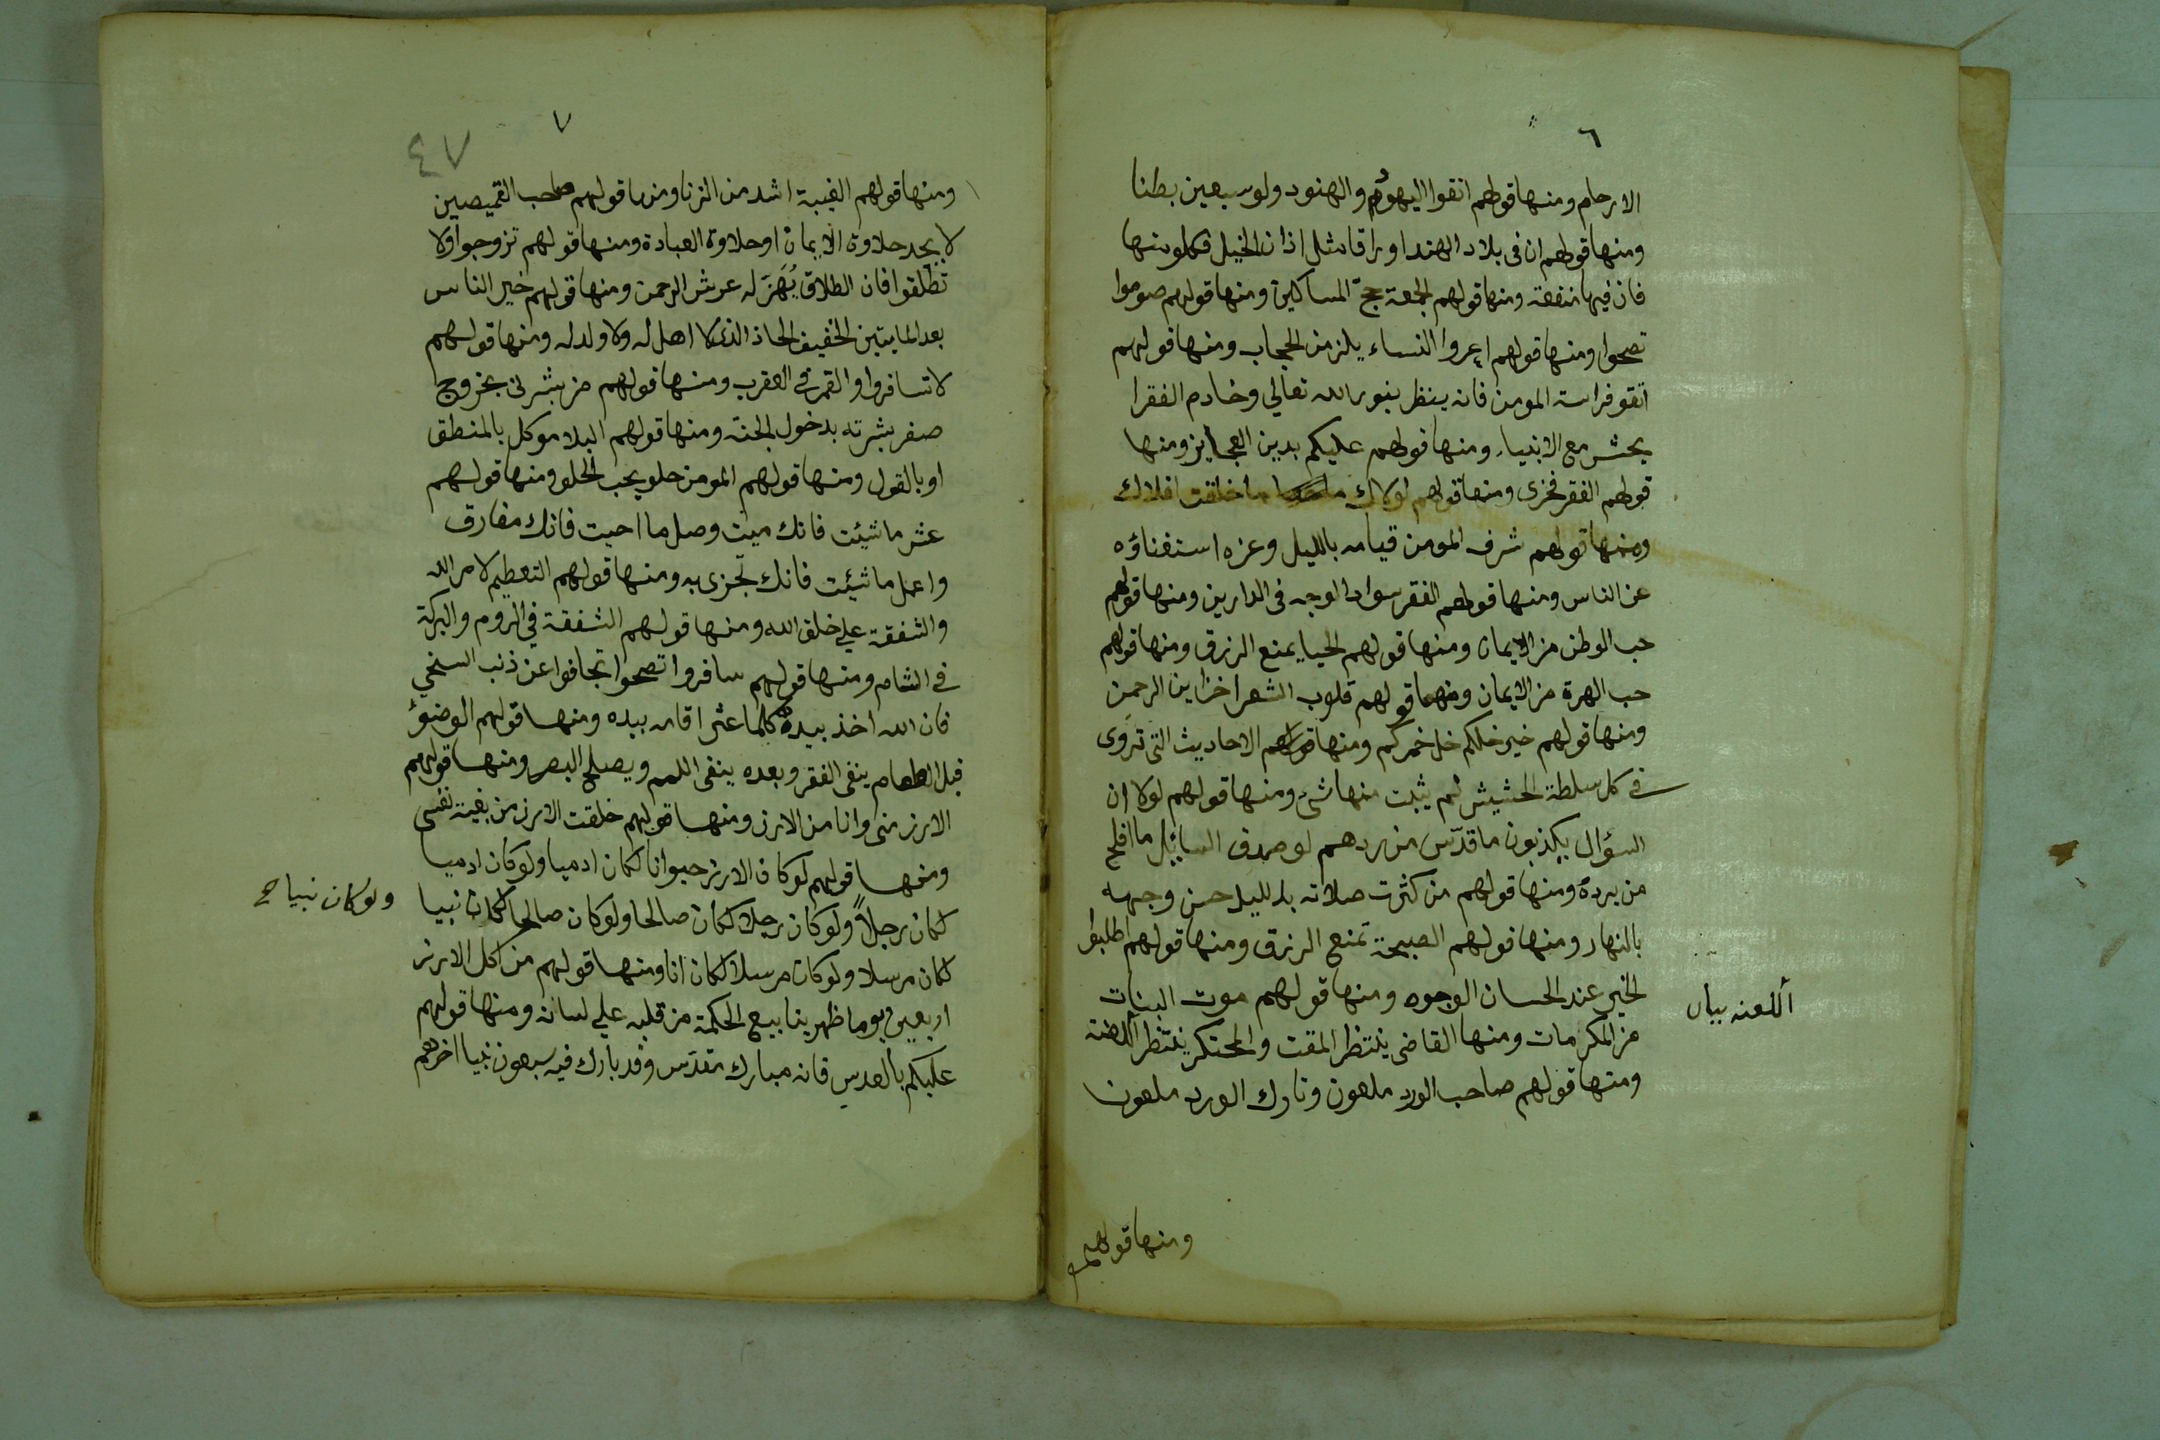 ٦
الارحام ومنها قولهم اتقوا اليهود والهنود ولو سبعين بطنا
ومنها قولهم ان فى بلاد الهند اوراقا مثل اذان الخيل فكلو منها
فان فيها منفعة ومنها قولهم الجمعة حجّ المساكين ومنها قولهم صوموا
تصحوا ومنها قولهم اعروا النساء يلزمن الحجاب ومنها قولهم
اتقو فراسة المومن فانه ينظر بنور الله تعالي وخادم الفقرا
يحشر مع الانبياء ومنها قولهم عليكم بدين العجايز ومنها
قولهم الفقر فخرى ومنها قولهم لولاك ما خلقت افلاك
ومنها قولهم شرف المومن قيامه بالليل وعزه استغناؤه
عن الناس ومنها قولهم الفقر سواد الوجه فى الدارين ومنها قولهم
حب الوطن من الايمان ومنها قولهم الحيا يمنع الرزق ومنها قولهم
حب الهرة من الايمان ومنها قولهم قلوب الشعرا خزاين الرحمن
ومنها قولهم خير خلكم خل خمركم ومنها قولهم الاحاديث التى تروى
فى كل سلطة الحشيش لم يثبت منها شئ ومنها قولهم لولا ان
السؤال يكذبون ما قدّس من ردهم لو صدق السايل ما افلح
من يرده ومنها قولهم من كثرت صلاته بالليل حسن وجهه
بالنهار ومنها قولهم الصبيحة تمنع الرزق ومنها قولهم اطلبوا
الخير عند الحسان الوجوه ومنها قولهم موت البنات
من المكرمات ومنها القاضى ينتظر المقت والمحتكر ينتظر اللعنة
ومنها قولهم صاحب الورد ملعون وتارك الورد ملعون
اللعنه بيان
ومنها قولهم
٧
٤٧
ومنها قولهم الغيبة اشد من الزنا ومنها قولهم صاحب القميصين
لا يجد حلاوة الايمان او حلاوة العبادة ومنها قولهم تزوجوا ولا
تطلقوا فان الطلاق يُهَزّ له عرش الرحمن ومنها قولهم خير الناس
بعد المايتين الخفيف الحاذ الذى لا اهل له ولا ولد له ومنها قولهم
لا تسافروا والقمر فى العقرب ومنها قولهم من بشرنى بخروج
صفر بشرته بدخول الجنة ومنها قولهم البلا موكل بالمنطق
او بالقول ومنها قولهم المومن حلو يحب الحلو ومنها قولهم
عش ما شيئت فانك ميت وصل ما احببت فانك مفارق
واعمل ما شيئت فانك تجزى به ومنها قولهم التعظيم لامر الله
والشفقة علي خلق الله ومنها قولهم الشفقة في الروم والبركة
فى الشام ومنها قولهم سافروا تصحوا تجافوا عن ذنب السخي
فان الله اخذ بيده كلما عثر اقامه بيده ومنها قولهم الوضوء
قبل الطعام ينفى الفقر وبعده ينفى اللمم ويصلح البصر ومنها قولهم
الارز منى وانا من الارز ومنها قولهم خلقت الارز من بقية نفسى
ومنها قولهم لوكان الارز حيوانا لكان ادميا ولوكان ادميا
لكان رجلاً ولوكان رجلا لكان صالحا ولوكان صالحا لكان نبيا
لكان مرسلا ولوكان مرسلا لكان انا ومنها قولهم من اكل الارز
اربعين يوما ظهر ينابيع الحكمة من قلبه علي لسانه ومنها قولهم
عليكم بالعدس فانه مبارك مقدّس وقد بارك فيه سبعون نبيا اخرهم
ولوكان نبيا صح